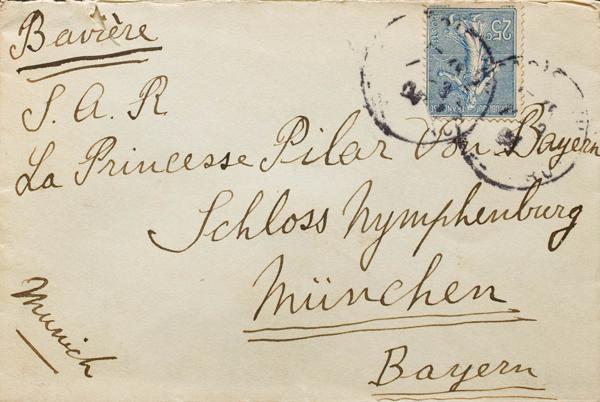 Bavière
25c
S. A. R
La Princesse Pilar Von Bayern
Schloss Nymphenburg
München
Munich
Bayern